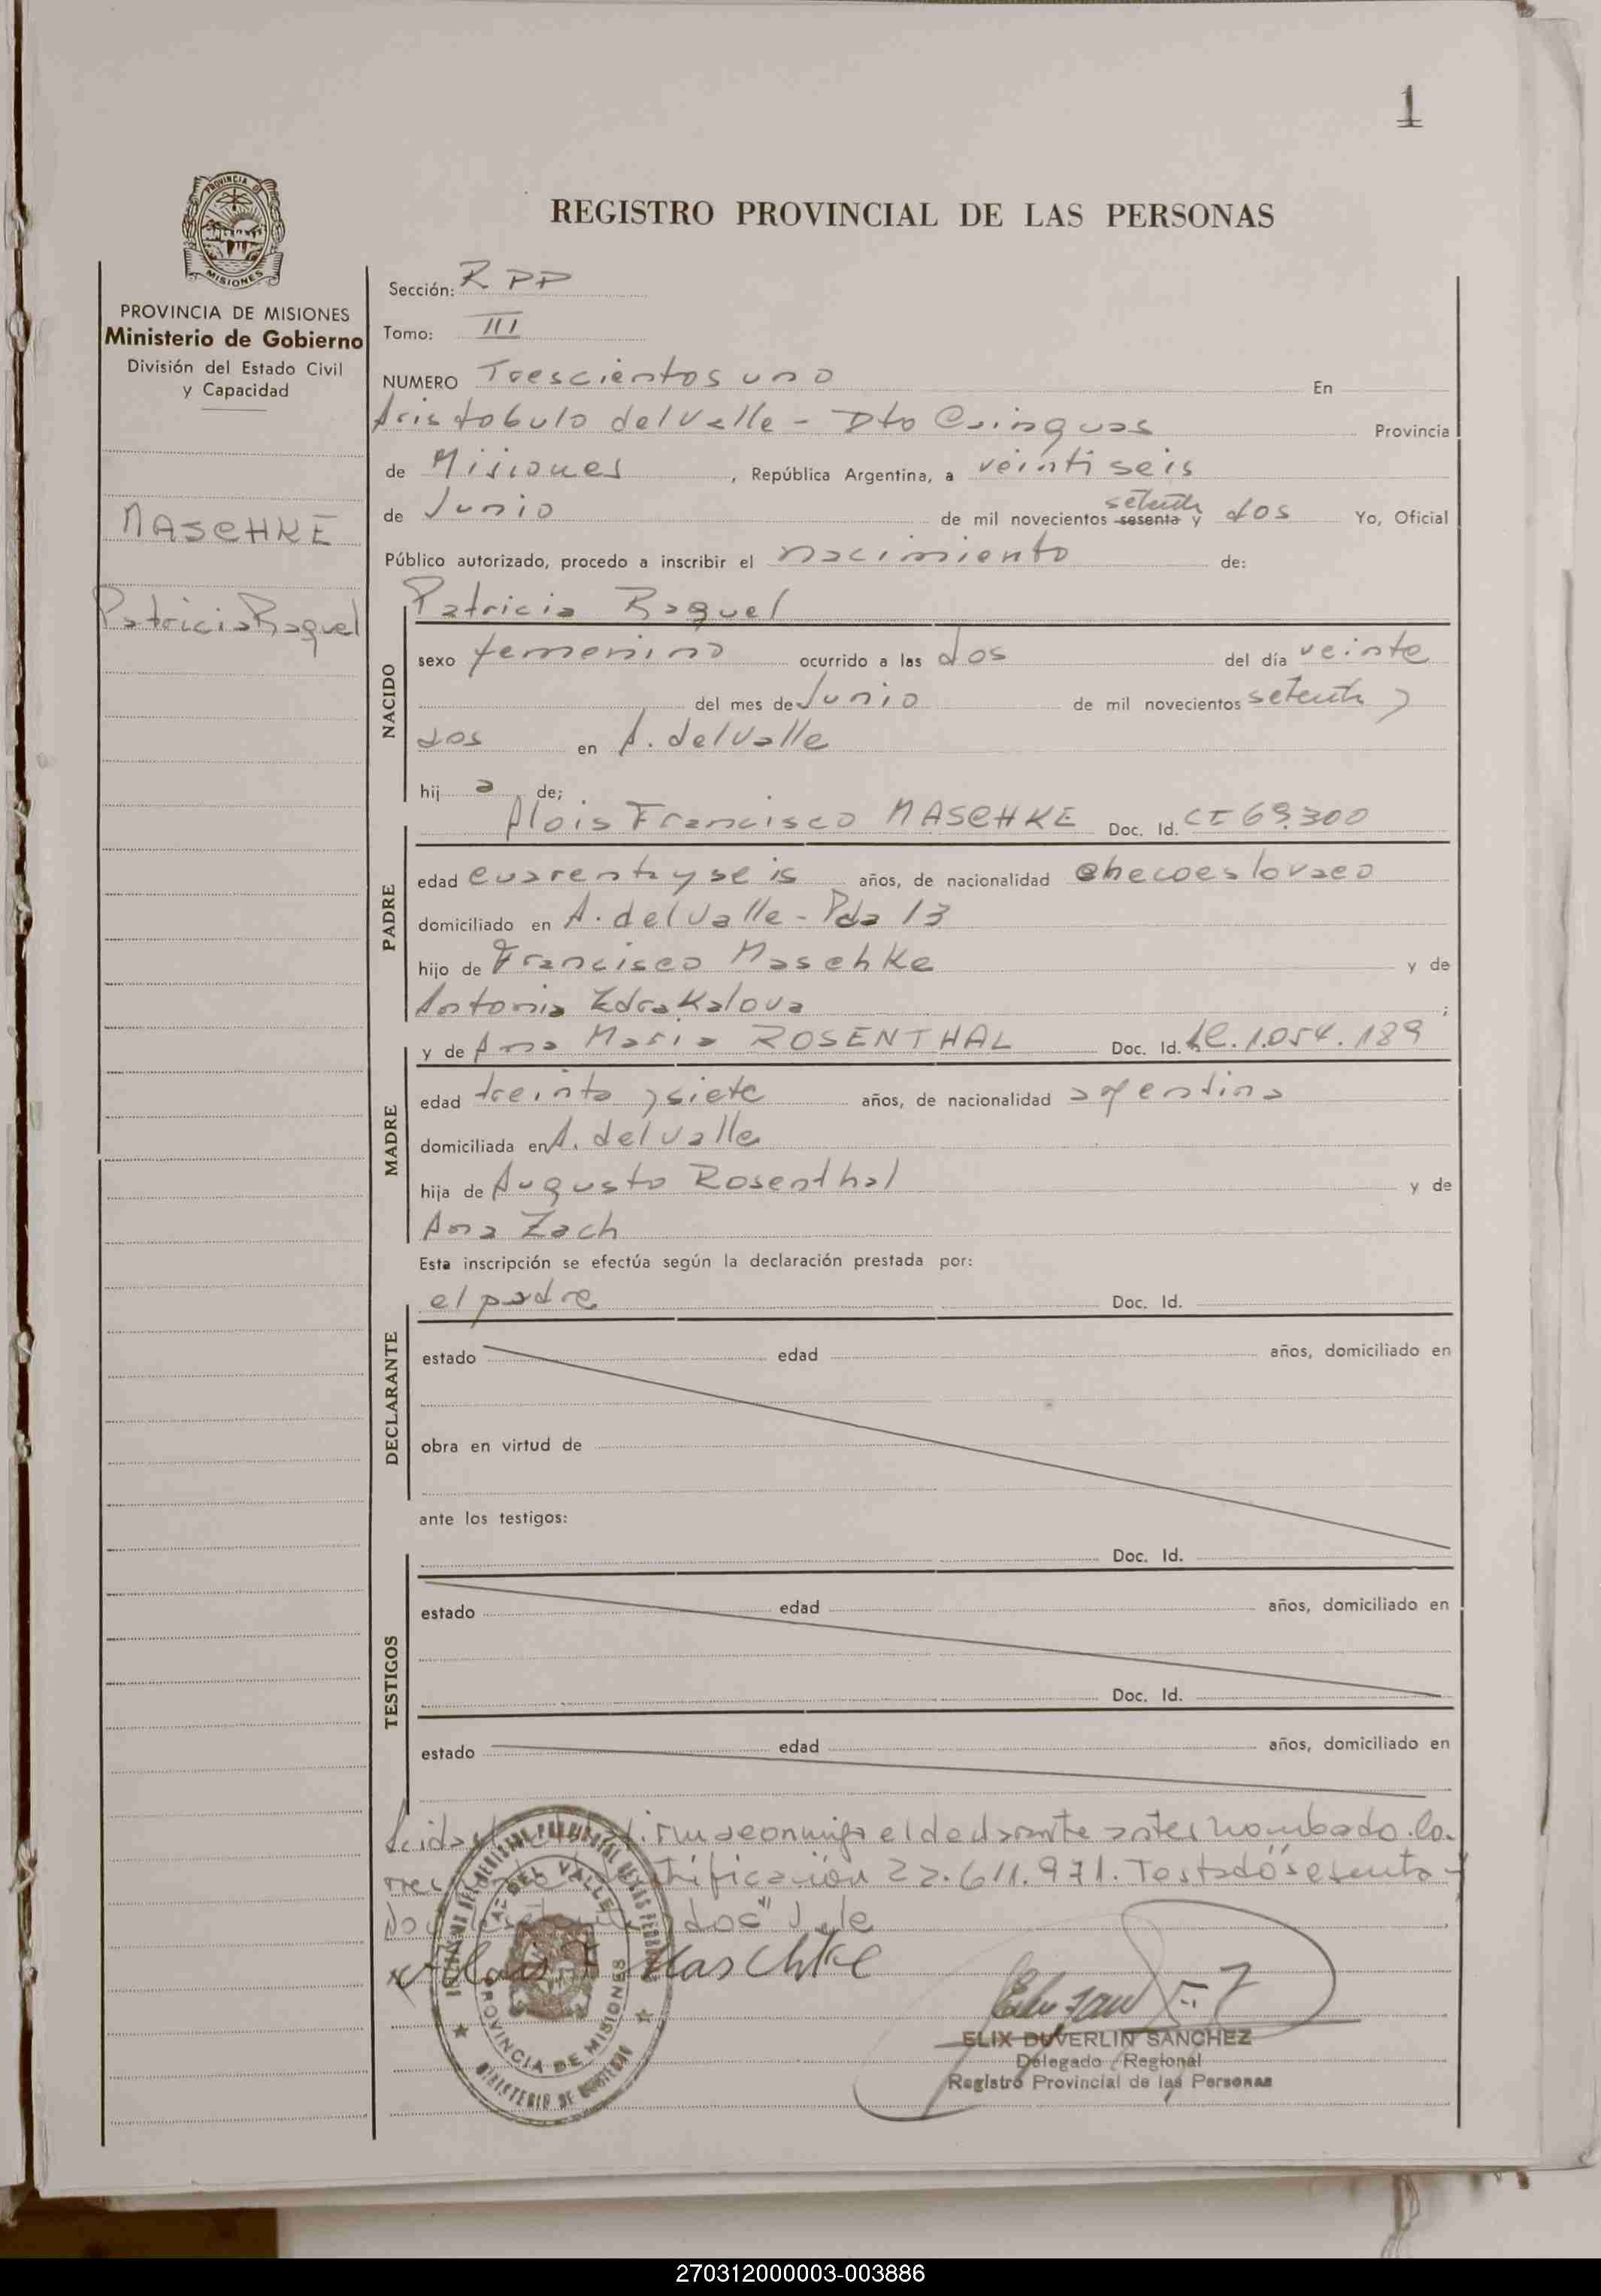 1
PROVINCIA DE MISIONES
REGISTRO PROVINCIAL DE LAS PERSONAS
PROVINCIA DE MISIONES
Ministerio de Gobierno
División del Estado Civil
y Capacidad
MASCHKE
Patricia Raquel
Sección: R PP
Tomo: III
NUMERO Trescientos uno En
Aristobulo del Valle - Dto Cainguas Provincia
de Misiones, República Argentina, a veintiseis
de Junio de mil novecientos sesenta y setenta dos Yo, Oficial
Público autorizado, procedo a inscribir el nacimiento de:
NACIDO
Patricia Raquel
sexo femenino ocurrido a las dos del día veinte
del mes de Junio de mil novecientos setenta y
dos en A. del Valle
hij a de;
PADRE
Alois Francisco MASCHKE Doc. Id. CI 69.300
edad cuarenta y seis años, de nacionalidad checoeslovaco
domiciliado en A. del Valle - Pda 13
hijo de Francisco Maschke y de
Antonia Zdrakalova ;
MADRE
y de Ana Maria ROSENTHAL Doc. Id. LC. 1.054.189
edad treinta y siete años, de nacionalidad argentina
domiciliada en A. del Valle
hija de Augusto Rosenthal y de
Ana Zach
Esta inscripción se efectúa según la declaración prestada por:
DECLARANTE
el padre Doc. Id.
estado edad años, domiciliado en
obra en virtud de
ante los testigos:
TESTIGOS
Doc. Id.
estado edad años, domiciliado en
Doc. Id.
estado edad años, domiciliado en
firma conmigo el declarante antes nombrado.
22.611.971. Testado "sesenta y
dos" vale
Alois F Maschke
DEL VALLE
PROVINCIA DE MISIONES
MINISTERIO DE GOBIERNO
ELIX DUVERLIN SANCHEZ
Delegado Regional
Registro Provincial de las Personas
270312000003-003886